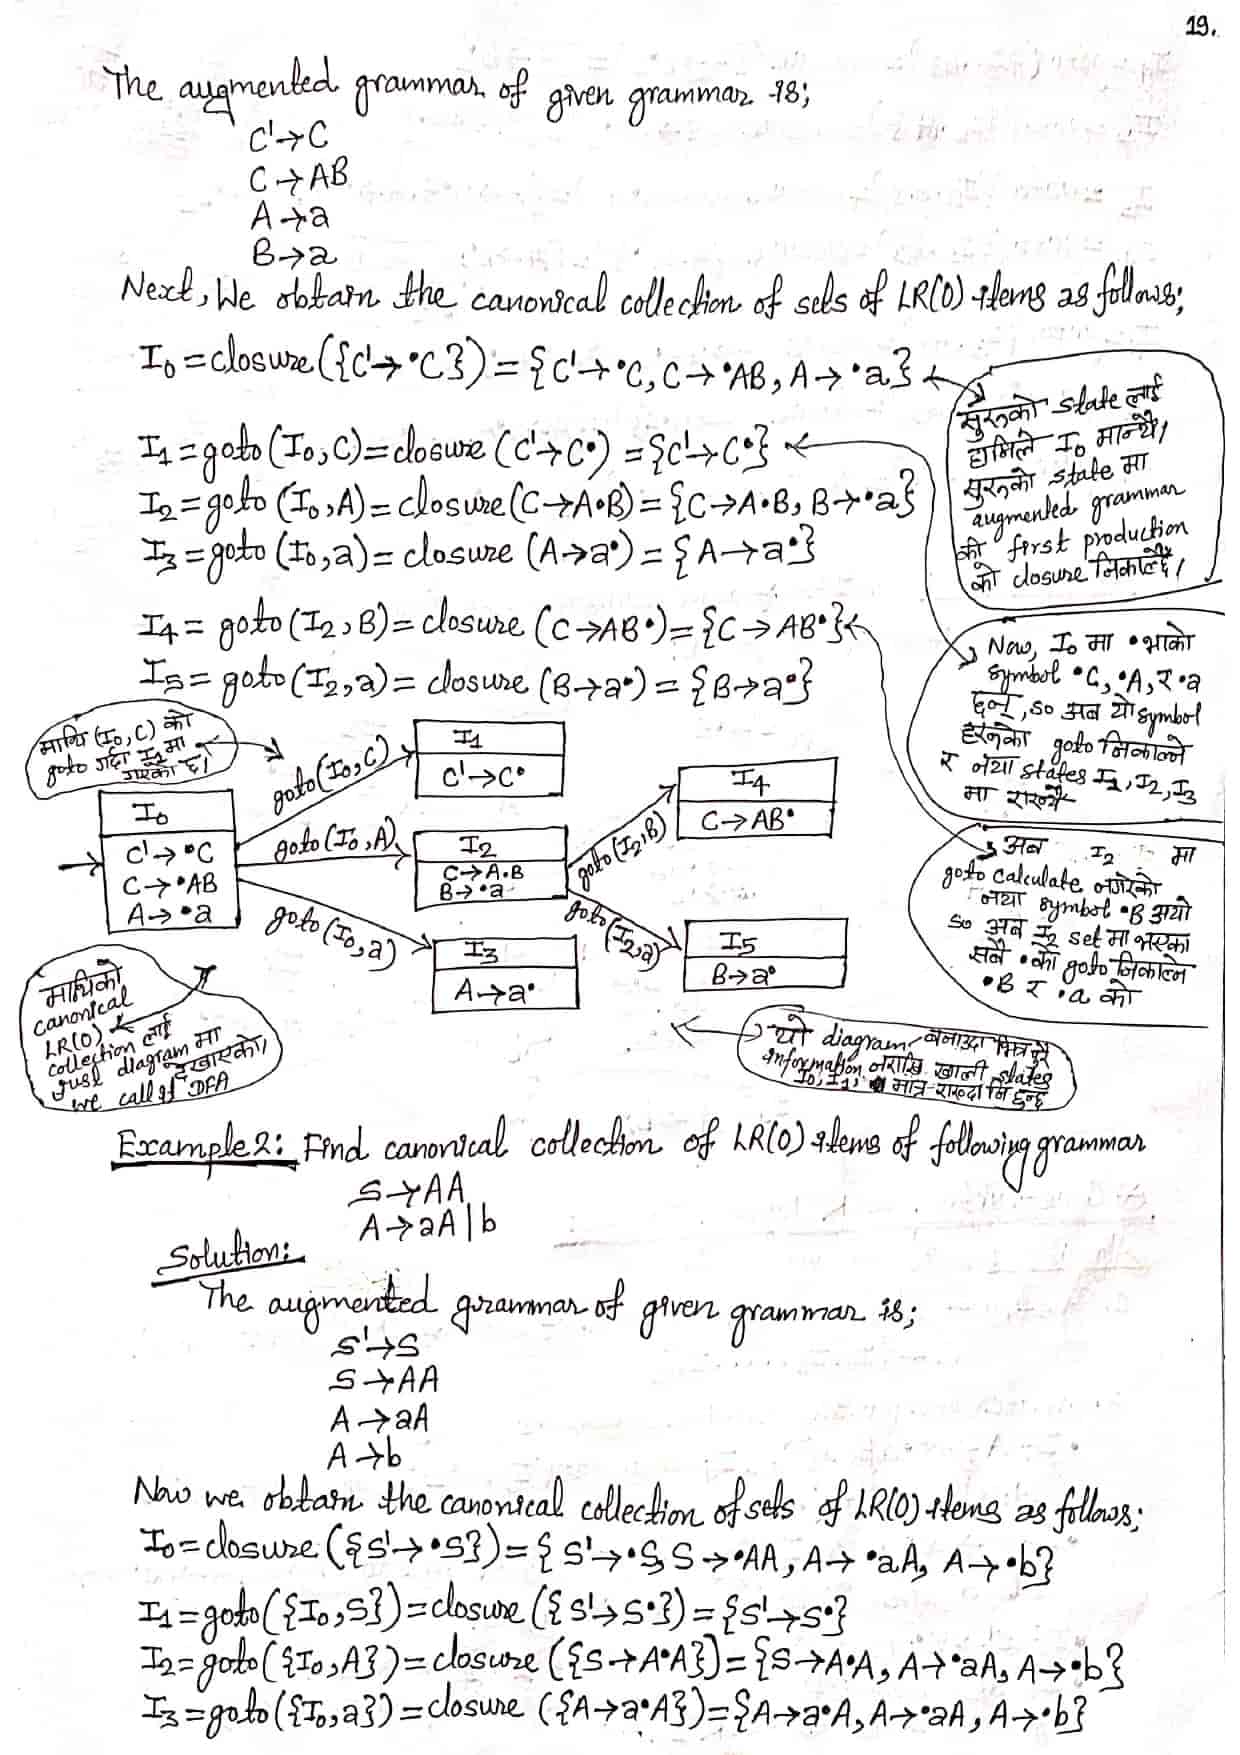 19.
The augmented grammar of given grammar is;
C'→C
C→AB
A→a
B→a
Next, We obtain the canonical collection of sets of LR(0) items as follows;
I₀=closure({C'→•C})={C'→•C, C→•AB, A→•a}
I₁=goto(I₀,C)=closure(C'→C•)={C'→C•}
I₂=goto(I₀,A)=closure(C→A•B)={C→A•B, B→•a}
I₃=goto(I₀,a)=closure(A→a•)={A→a•}
I₄=goto(I₂,B)=closure(C→AB•)={C→AB•}
I₅=goto(I₂,a)=closure(B→a•)={B→a•}
सुरुको state लाई
हामिले I₀ मान्थ्यै।
सुरुको state मा
augmented grammar
को first production
को closure निकाल्छै।
Now, I₀ मा •भाको
symbol •C, •A, र •a
छन्, so अब यो symbol
हरुको goto निकाल्ने
र नया states I₁, I₂, I₃
मा राख्यै
अब I₂ मा
goto calculate नगरेको
नया symbol •B अयो
so अब I₂ set मा भएका
सबै •को goto निकाल्ने
•B र •a को
माथि (I₀,C) को
goto गर्दा I₁ मा
गएको छ।
I₀
C'→•C
C→•AB
A→•a
goto(I₀,C)
I₁
C'→C•
goto(I₀,A)
I₂
C→A•B
B→•a
goto(I₀,a)
I₃
A→a•
goto(I₂,B)
I₄
C→AB•
goto(I₂,a)
I₅
B→a•
माथिको
canonical
LR(0)
collection लाई
just diagram मा
देखाएको।
we call it DFA
यो diagram बनाउदा भित्र पुरै
information नराखि खाली states
I₀, I₁, मात्र राख्दा नि हुन्छ
Example 2: Find canonical collection of LR(0) items of following grammar
S→AA
A→aA|b
Solution:
The augmented grammar of given grammar is;
S'→S
S→AA
A→aA
A→b
Now we obtain the canonical collection of sets of LR(0) items as follows;
I₀=closure({S'→•S})={S'→•S, S→•AA, A→•aA, A→•b}
I₁=goto({I₀,S})=closure({S'→S•})={S'→S•}
I₂=goto({I₀,A})=closure({S→A•A})={S→A•A, A→•aA, A→•b}
I₃=goto({I₀,a})=closure({A→a•A})={A→a•A, A→•aA, A→•b}